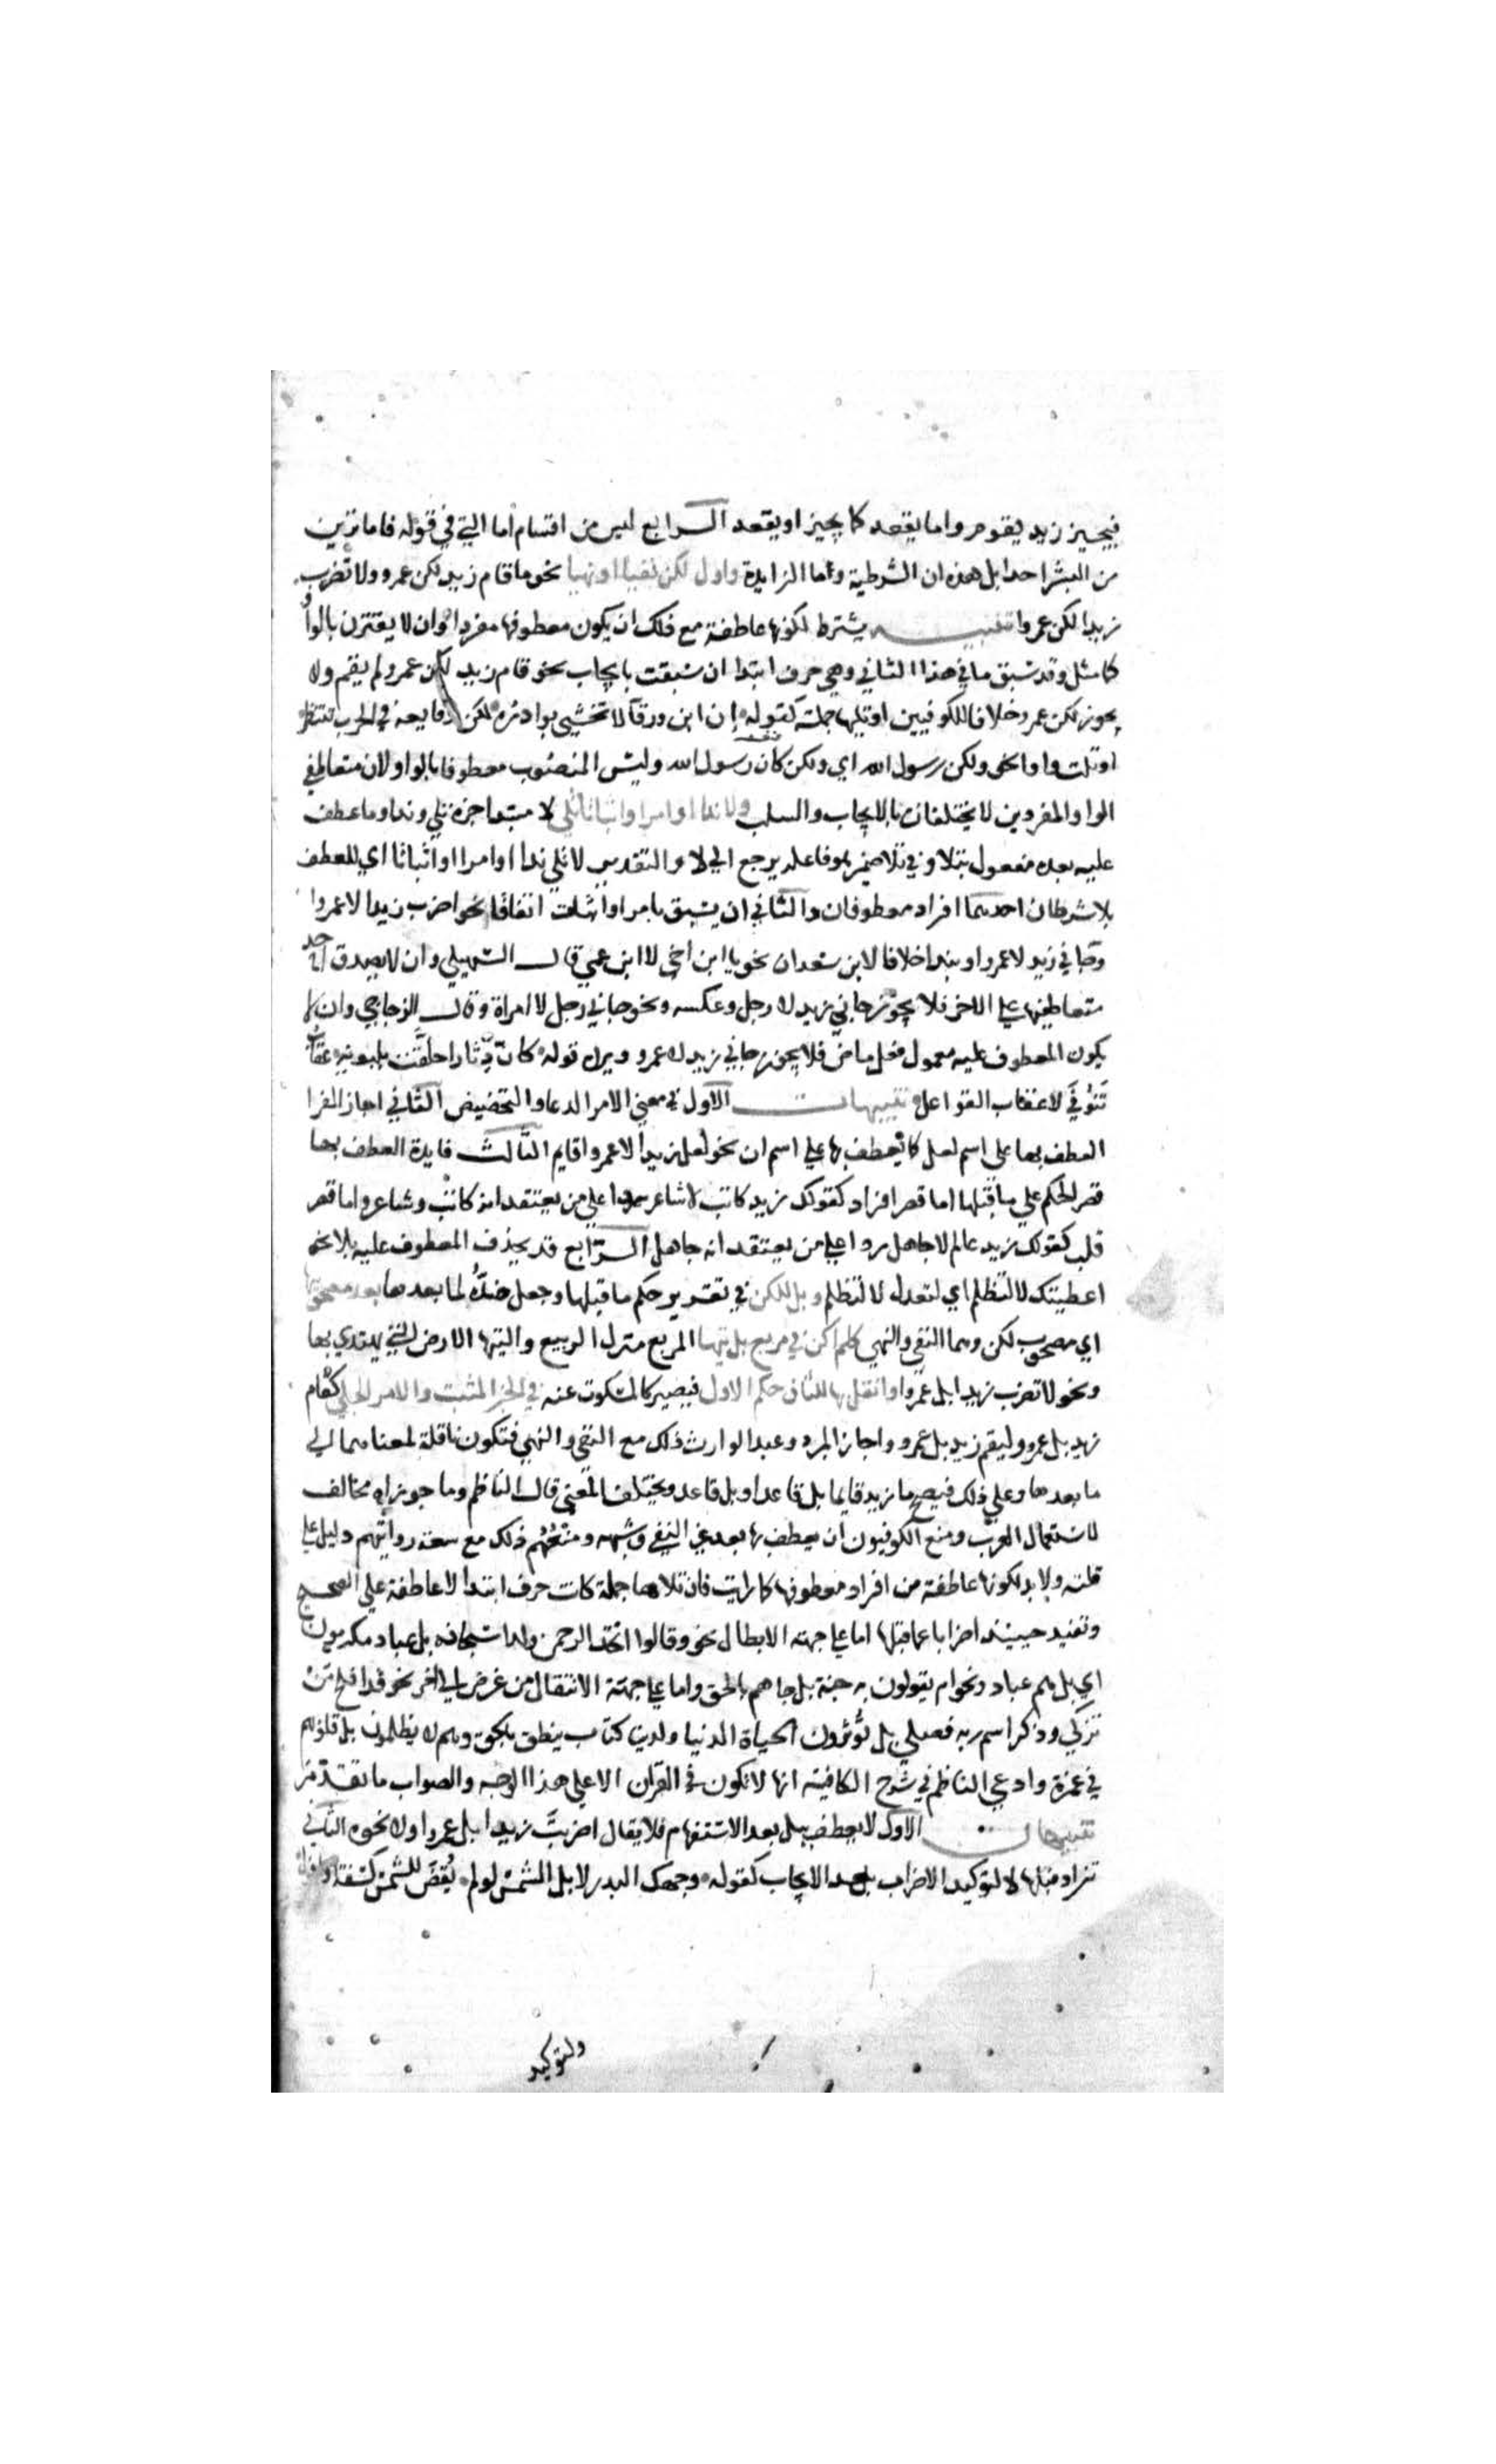 فيجيز زيد يقوم واما يقعد كما يجيز او يقعد الرابع ليس من اقسام اما التي في قوله فاما ترين
من البشر احدا بل هذه ان الشرطية وما الزايدة واول لكن نفيا او نهيا نحو ما قام زيد لكن عمرو ولا تضرب
زيدا لكن عمرا تنبيه يشترط لكونها عاطفة مع ذلك ان يكون معطوفها مفردا وان لا يقترن بالواو
كما مثل وقد سبق ما في هذا الثاني وهي حرف ابتدا ان سبقت بايجاب نحو قام زيد لكن عمرو لم يقم ولا
يجوز لكن عمرو خلافا للكوفيين او تلتها جملة كقوله ان ابن ورقآ لا تخشى بوادره لكن وقايعه في الحرب تنتظر
او تلت واوا نحو ولكن رسول الله اي ولكن كان رسول الله وليس المنصوب معطوفا بالواو لان متعاطفي
الواو المفردين لا يختلفان بالايجاب والسلب ولا ندا او امرا او اثباتا تلي لا مبتدا خبره تلي وندا وما عطف
عليه بعده مفعول بتلا وفي تلا ضمير هو فاعله يرجع الى لا والتقدير لا تلي ندا او امرا او اثباتا اي للعطف
بلا شرطان احدهما افراد معطوفان والثاني ان يسبق بامر او اثبات اتفاقا نحو اضرب زيدا لا عمروا
وجاني زيد لا عمرو او بندا خلافا لابن سعدان نحو يا ابن اخي لا ابن عمي قال السهيلي وان لا يصدق احد
متعاطفيها على الاخر فلا يجوز جاني زيد لا رجل وعكسه ونحو جاني رجل لا امراة وقال الزجاجي وان لا
يكون المعطوف عليه معمول فعل ماض فلا يجوز جاني زيد لا عمرو ويرده قوله كان دثارا حلقت بلبونه عقاب
تنوفى لا عقاب القواعل تنبيهات الاول في معنى الامر الدعا والتحضيض الثاني اجاز الفرا
العطف بها على اسم لعل كما يعطف بها على اسم ان نحو لعل زيدا لا عمروا قايم الثالث فايدة العطف بها
قصر الحكم على ما قبلها اما قصر افراد كقولك زيد كاتب لا شاعر ردا على من يعتقد انه كاتب وشاعر واما قصر
قلب كقولك زيد عالم لا جاهل ردا على من يعتقد انه جاهل الرابع قد يحذف المعطوف عليه بلا نحو
اعطيتك لا لتظلم اي لتعدل لا لتظلم وبل كلكن في تقرير حكم ما قبلها وجعل ضده لما بعدها بعد مصحوبيها
اي مصحوبي لكن وهما النفي والنهي كلم اكن في مربع بل تيها المربع منزل الربيع والتيها الارض التي لا يهتدي بها
ونحو لا تضرب زيدا بل عمروا وانقل بها للثان حكم الاول فيصير كالمسكوت عنه في الخبر المثبت والامر الجلي كقام
زيد بل عمرو وليقم زيد بل عمرو واجاز المبرد وعبد الوارث ذلك مع النفي والنهي فتكون ناقلة لمعناهما الى
ما بعدها وعلى ذلك فيصح ما زيد قايما بل قاعدا وبل قاعد ويختلف المعنى قال الناظم وما جوزاه مخالف
لاستعمال العرب ومنع الكوفيون ان يعطف بها بعد غير النفي وشبهه ومنعهم ذلك مع سعة روايتهم دليل على
قلته ولا بد لكونها عاطفة من افراد معطوفها كما رايت فان تلاها جملة كانت حرف ابتدا لا عاطفة على الصحيح
وتفيد حينيذ اضرابا عما قبلها اما على جهة الابطال نحو وقالوا اتخذ الرحمن ولدا سبحانه بل عباد مكرمون
اي بل هم عباد ونحو ام يقولون به جنة بل جاهم بالحق واما على جهة الانتقال من غرض الى اخر نحو قد افلح من
تزكى وذكر اسم ربه فصلى بل تؤثرون الحياة الدنيا ولدينا كتاب ينطق بالحق وهم لا يظلمون بل قلوبهم
في غمرة وادعى الناظم في شرح الكافية انها لا تكون في القران الا على هذا الوجه والصواب ما تقدم
تنبيهان الاول لا يعطف ببل بعد الاستفهام فلا يقال اضربت زيدا بل عمروا ولا نحوه الثاني
تزاد قبلها لا لتوكيد الاضراب بعد الايجاب كقوله وجهك البدر لا بل الشمس لو لم يقض للشمس كسفة
ولتوكيد